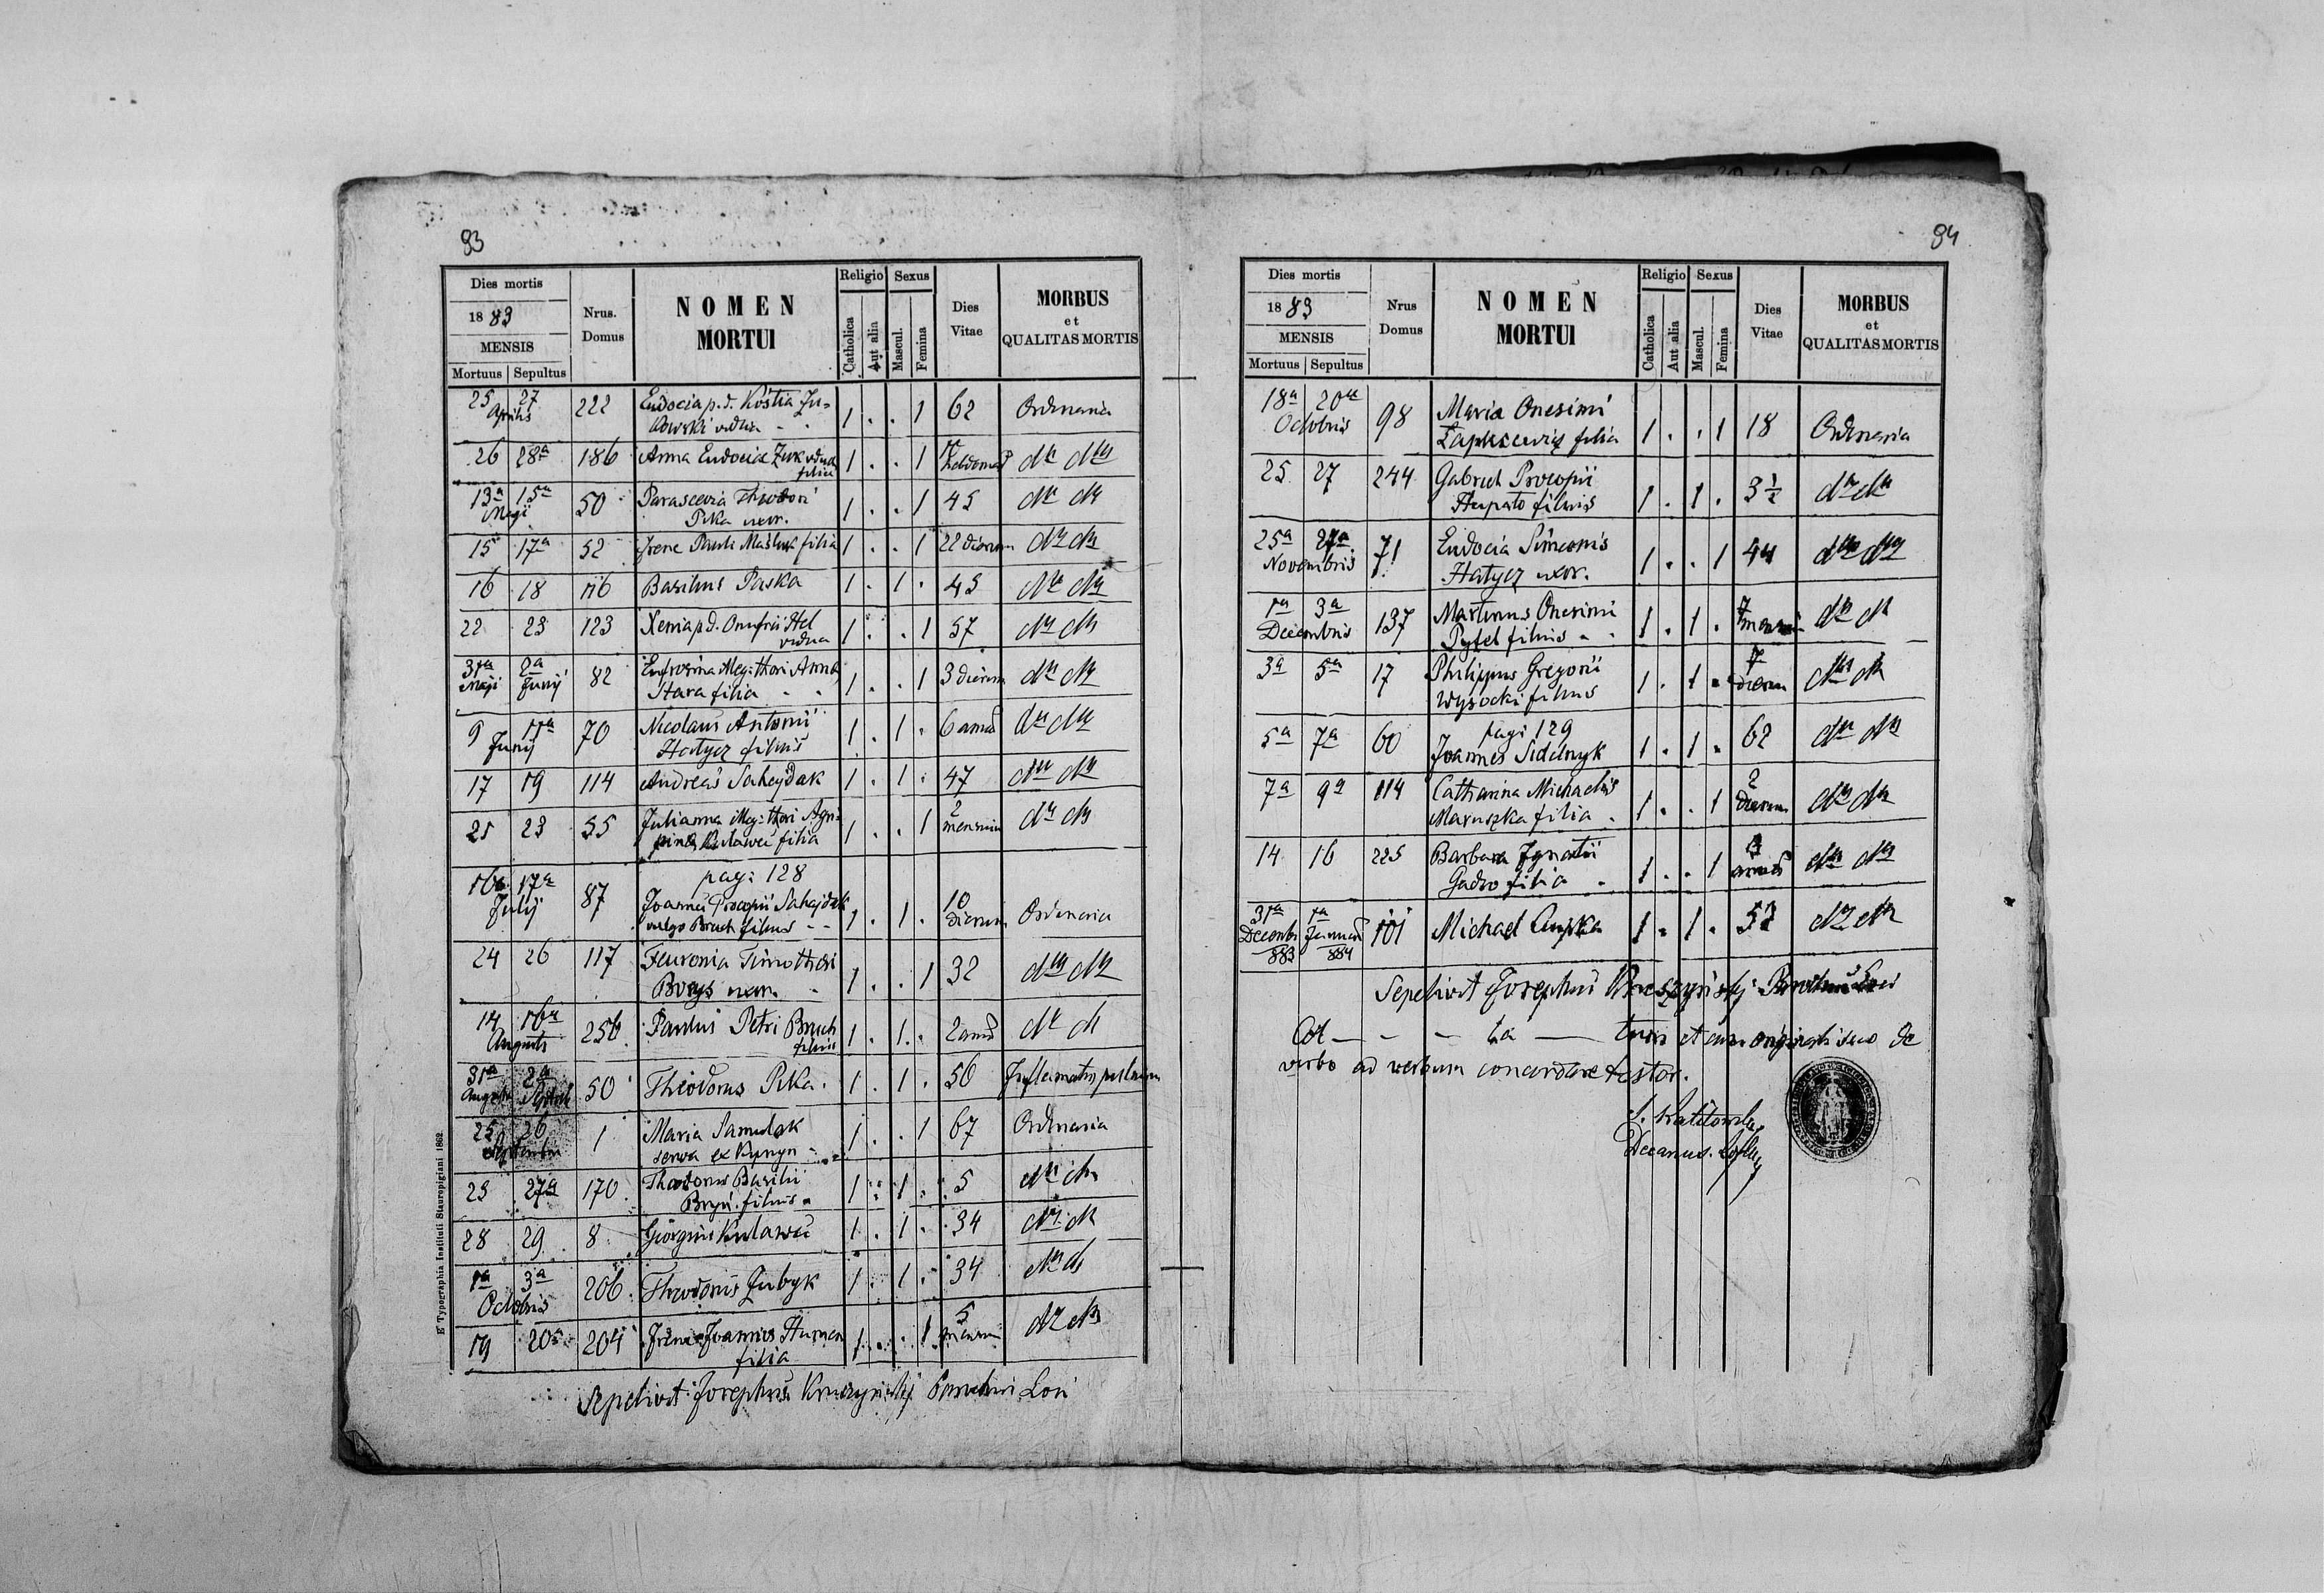 93
Dies mortis
1883
MENSIS
Mortuus Sepultus
Nrus. Domus
NOMEN MORTUI
Religio
Catholica
Aut alia
Sexus
Mascul.
Femina
Dies Vitae
MORBUS et QUALITAS MORTIS
25 27 222 Eudocia p. d. Kostia Zu= 1 . . 1 62 Ordinaria
Aprilis vidua
26 28a 186 Anna Eudociae Zuk vidua 1 . . 1
filia
13a 15a 50 Parascevia Theodori 1 . . 1 45 dto dto
Maji Pika uxor.
15 17a 52 Irene Pauli Masluk filia 1 . . 1 22 dierum dto dto
16 18 116 Basilius Paska 1 . 1 . 45 dto dto
22 23 123 Xenia p d. Onufrii Hel 1 . . 1 57 dto dto
vidua
31a 2a 82 Eufrosina illeg: thori Anna 1 . . 1 3 dierum dto dto
Maji Junij Stara filia
9 11a 70 Nicolaus Antonii 1 . 1 . 6 annos dto dto
Junij Hatycz filius
17 19 114 Andreas Sahajdak 1 . 1 . 47 dto dto
21 23 55 Julianna illeg: thori Agri= 1 . . 1 2 mensium dto dto
pina Kulawci filia
pag: 128
16a 17a 87 Joannes Procopii Sahajdak 1 . 1 . 10 dierum Ordinaria
Julij vulgo Bruch filius
24 26 117 Feuronia Timothei 1 . . 1 32 dto dto
Borys uxor.
14 16a 256 Paulus Petri Bruch 1 . 1 . 2 annos dto dto
Augusti filius
31a 2a 50 Theodorus Pika 1 . 1 . 56 Inflamatio pulmonum
Augusti
25 26 1 Maria Samulak 1 . . 1 67 Ordinaria
Septembris serva ex
25 27a 170 Theodorus Basilii 1 . 1 . 5 dto dto
filius
28 29 8 Georgius Kulawci 1 . 1 . 34 dto dto
1a 3a 206 Theodorus Zubyk 1 . 1 . 34 dto dto
Octobris
19 20 204 Irene Joannis Humen 1 . . 1 5 mensium dto dto
filia
Sepelivit Josephus Kruszyński Parochus Loci
E Typographia Instituti Stauropigiani 1862
94
Dies mortis
1883
MENSIS
Mortuus Sepultus
Nrus Domus
NOMEN MORTUI
Religio
Catholica
Aut alia
Sexus
Mascul.
Femina
Dies Vitae
MORBUS et QUALITAS MORTIS
18a 20a 98 Maria Onesimi 1 . . 1 18 Ordinaria
Octobris filia
25 27 244 Gabriel Procopii 1 . 1 . 3 1/2 dto dto
Hupalo filius
25a 27a 71 Eudocia Simeonis 1 . . 1 44 dto dto
Novembris Hatycz uxor.
1a 3a 137 Martinus Onesimi 1 . 1 . 7 dto dto
Decembris Pytel filius
3a 5a 17 Philippus Gregorii 1 . 1 . 7 dierum dto dto
Wysocki filius
pag: 129
5a 7a 60 Joannes Sidelnyk 1 . 1 . 62 dto dto
7a 9a 114 Catharina Michaelis 1 . . 1 2 dierum dto dto
Maruszka filia
14 16 225 Barbara Ignatii 1 . . 1 annos dto dto
Gadzo filia
31a 1a 101 Michael Cupka 1 . 1 . dto dto
Decembr Januar
883 884
Sepelivit Josephus Kruszyński Parochus Loci
Col — — — La — tum et cum originali suo de
verbo ad verbum concordare testor.
Decanus